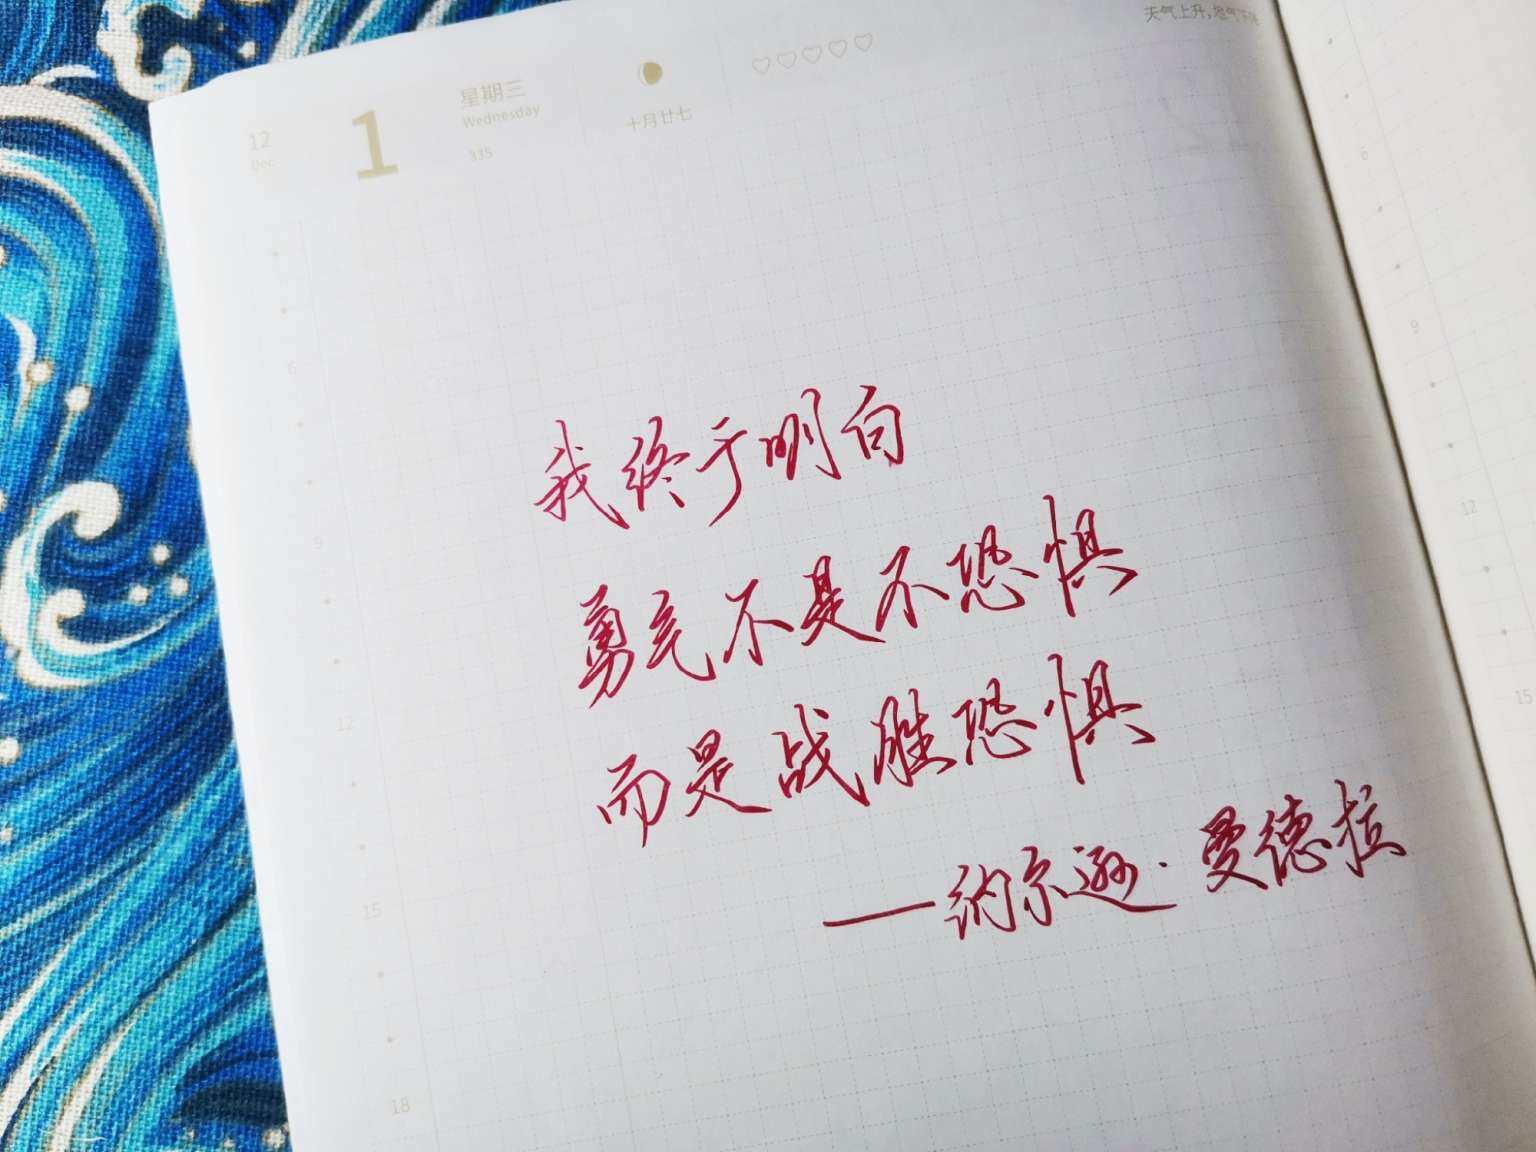 天气上升，
12
Dec
1
星期三
Wednesday
335
十月廿七
我终于明白
勇气不是不恐惧
而是战胜恐惧
——纳尔逊·曼德拉
6
9
12
15
18
6
9
12
15